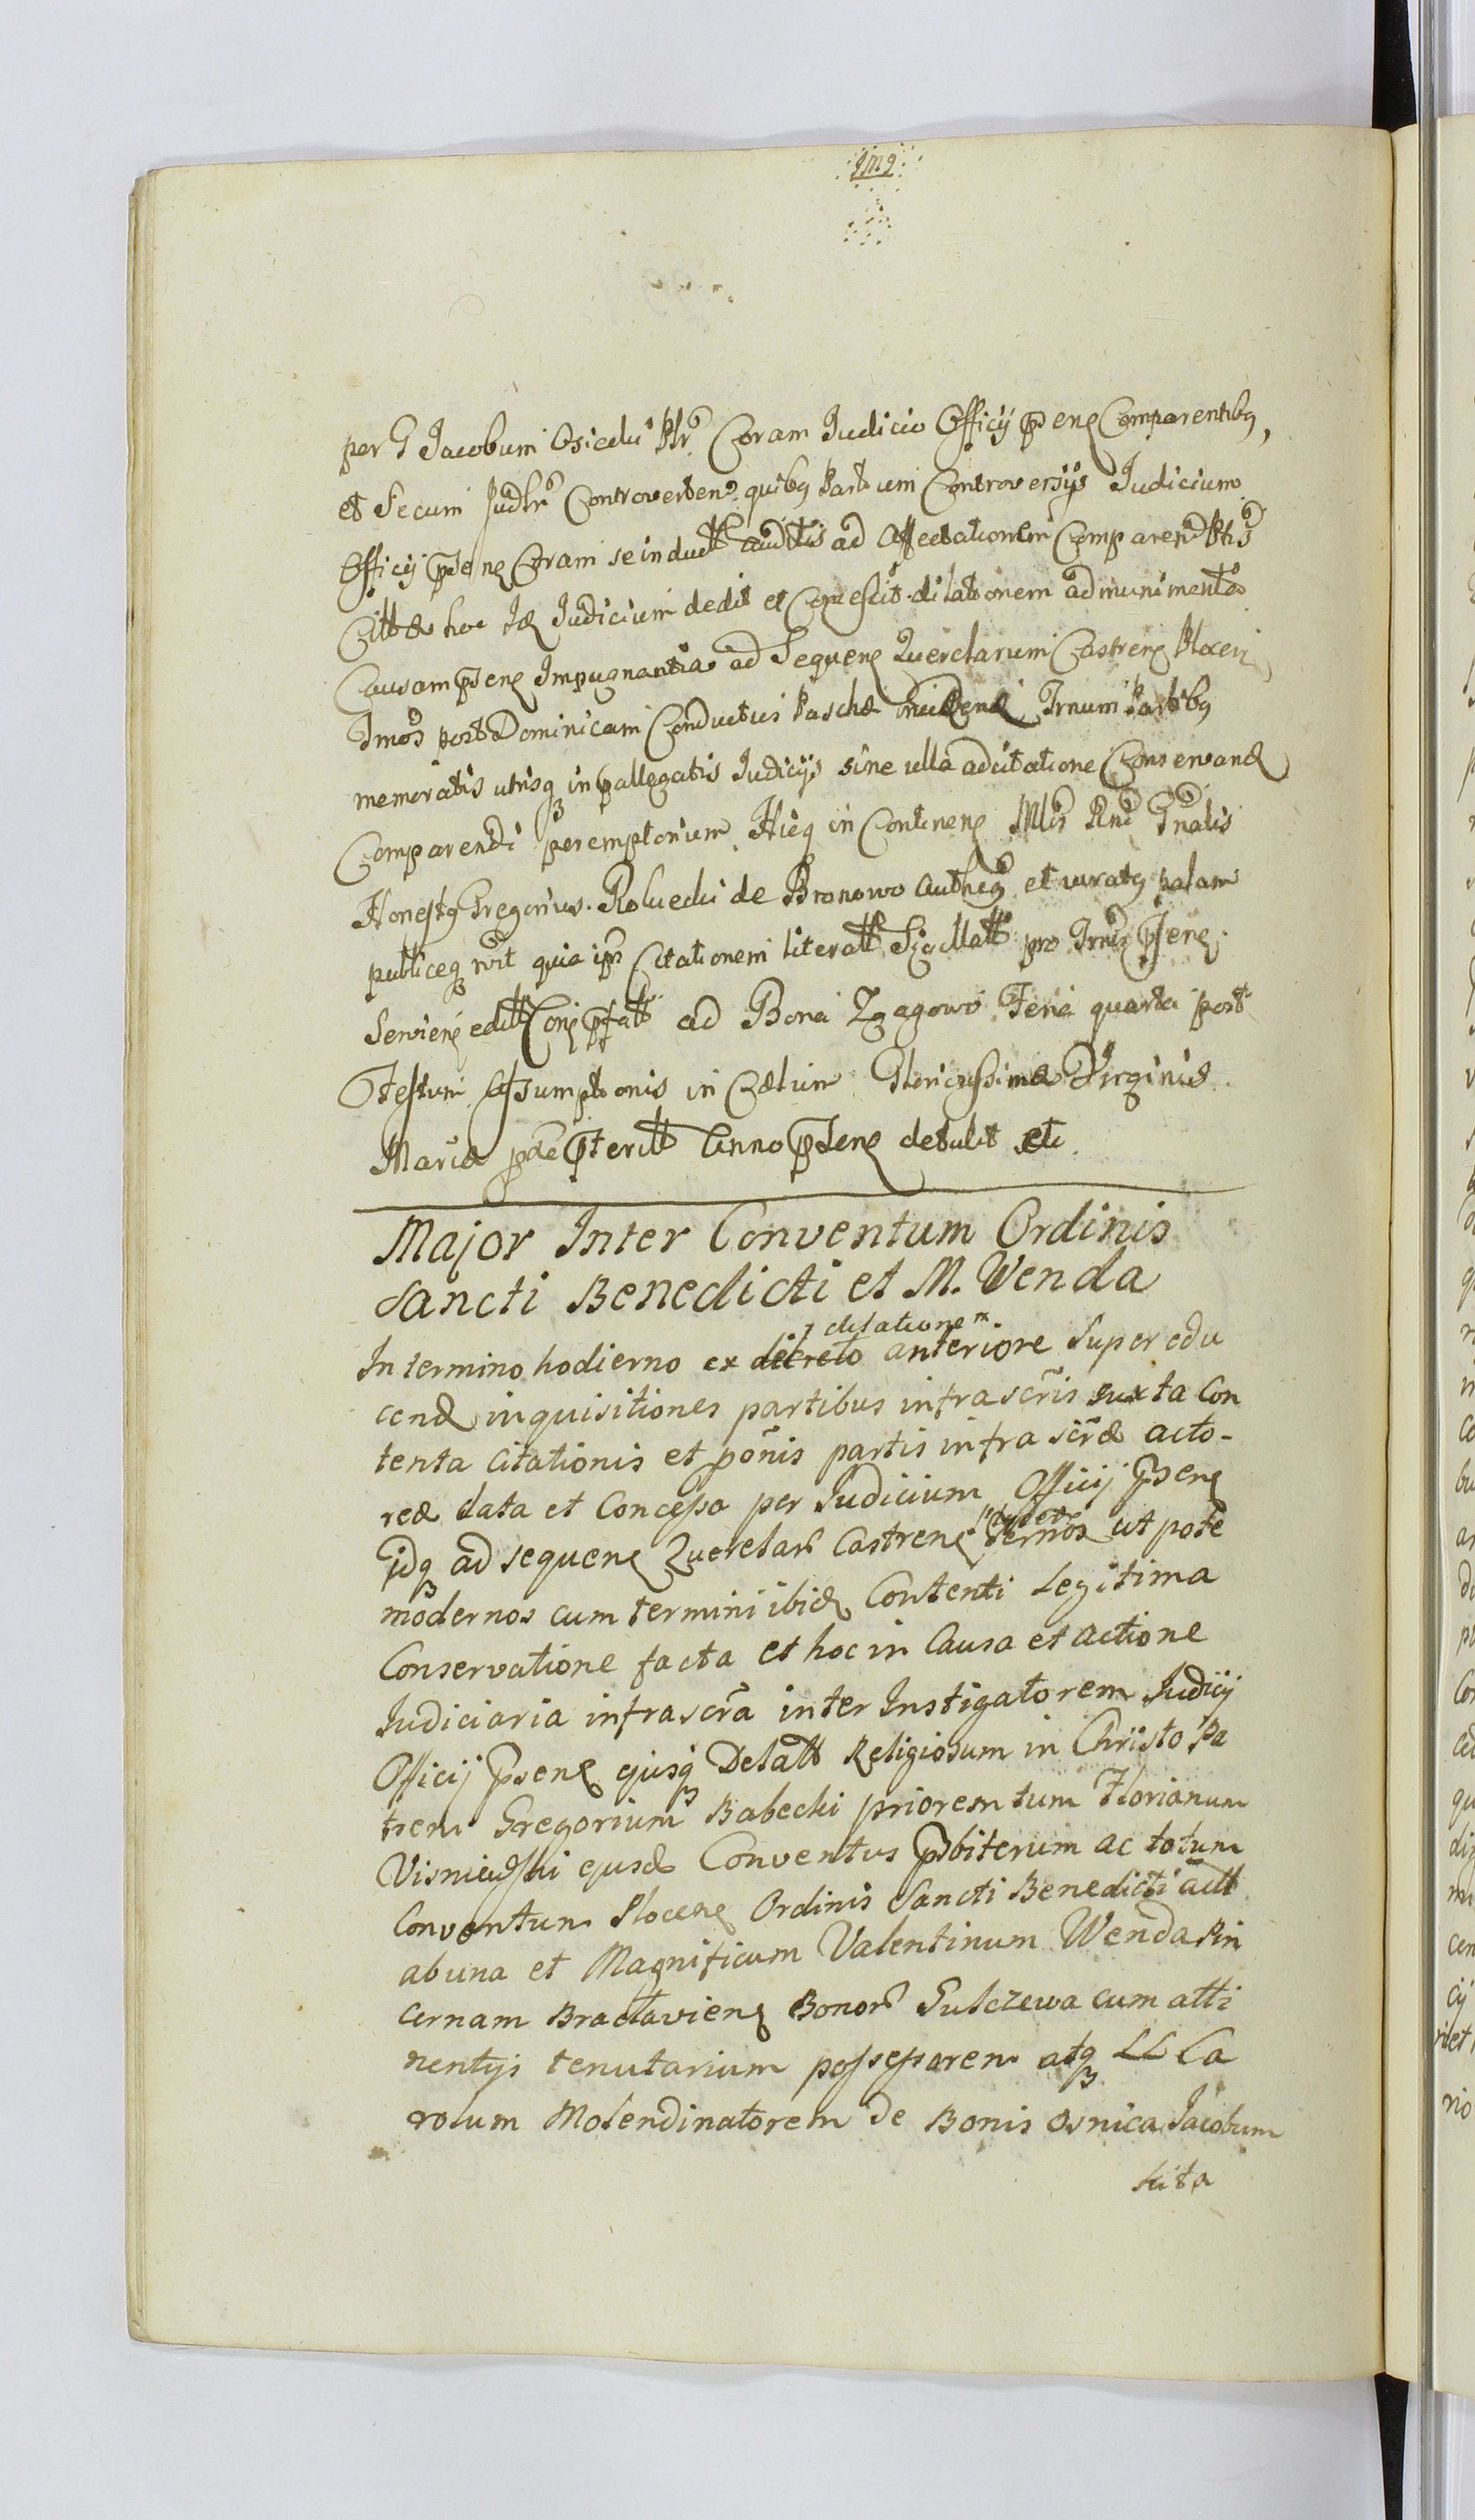 per G Jacobum Osiecki Coram Iudicio Officij psens Comparentibq,
et secum Judlr Controverten quibq partium Controversijs Iudicium
Officij psens Coram se induct auditis ad affectationem Comparen
hoc Id Iudicium dedit et Concessit dilationem ad munimenta
Causam psens Impugnantia ad sequens Querelarum Castrens Plocen
Tmos post Dominicam Conductus Paschæ Trnum Partibq
memoratis utrisq in pallegatis Iudicijs sine ulla adcitatione Conservand
Comparendi peremptorium. Hicq in Continens Mlis Rni Gnalis
Honestq Gregorius Roluecki de Bronowo authcq et iuratq palam
publiceq rvit quia ips Citationem literatt Sigillatt pro Trno psens
Serviens editt ad Bona Zgagowo Feria quarta post
Festum Assumptionis in Cælum Gloriosissimæ Virginis
Mariæ pde pteritt Anno psens detulit etc
Major Inter Conventum Ordinis
Sancti Benedicti et M. Wenda
dilatione
In termino hodierno ex decreto anteriore super edu
cend inquisitiones partibus infrascris juxta Con
tenta Citationis et ponis partis infra scræ acto-
reæ data et Concessa per Iudicium Officij psens
idq ad sequens Querelar Castrens ternos ut pote
modernos cum termini ibid Contenti legitima
Conservatione facta et hoc in Causa et actione
Iudiciaria infrascra inter Instigatorem Iudicij
Officij psens ejusq Delatt Religiosum in Christo Pa
trem Gregorium Babecki priorem tum Florianum
ejusd Conventus psbiterum ac totum
Conventum Plocens Ordinis Sancti Benedicti actt
ab una et Magnificum Valentinum Wenda Pin
cernam Bractaviens Bonor Gulczewa cum atti
nentijs tenutarium possessorem atq LL Ca
rolum Molendinatorem de Bonis Osnica Jacobum